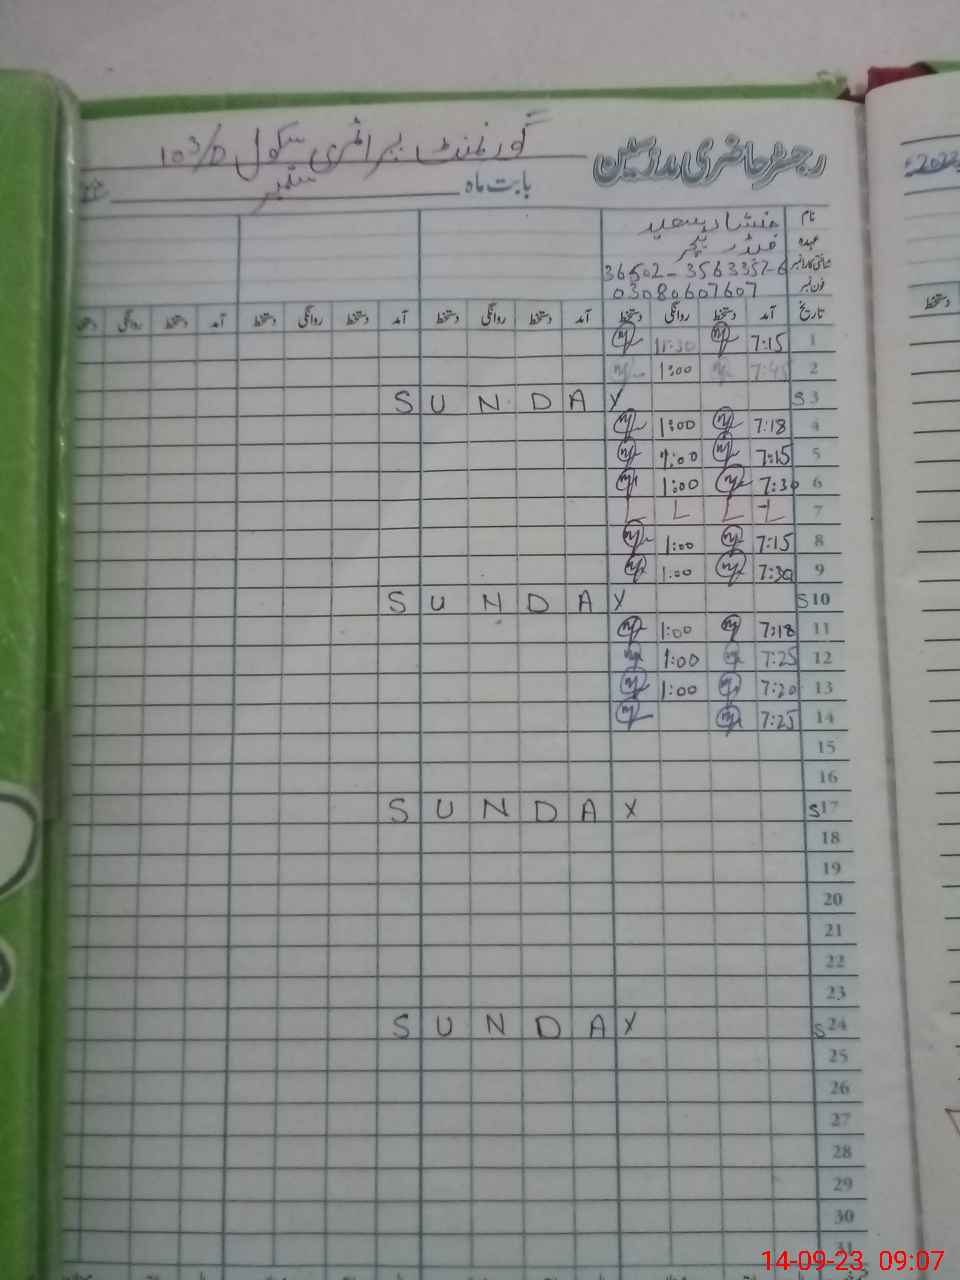 رجسٹر حاضری مدرسین گورنمنٹ پرائمری سکول 103/D
بابت ماہ ستمبر
نام
عہدہ ٹیچر
شناختی کارڈ نمبر 36502-3563357-6
فون نمبر 03080607607
تاریخ آمد دستخط روانگی دستخط آمد دستخط روانگی دستخط آمد دستخط روانگی دستخط آمد دستخط روانگی دستخط
1 7:15 11:30
2 7:45 1:00
S 3 S U N D A Y
4 7:18 1:00
5 7:15 1:00
6 7:30 1:00
7 L L L L
8 7:15 1:00
9 7:30 1:00
S 10 S U N D A Y
11 7:18 1:00
12 7:25 1:00
13 7:20 1:00
14 7:25
15
16
S 17 S U N D A Y
18
19
20
21
22
23
S 24 S U N D A Y
25
26
27
28
29
30
31
2022
دستخط
14-09-23 09:07